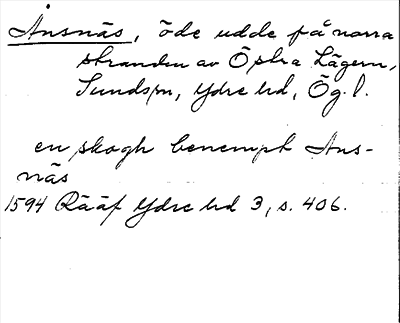 Ånsnäs, öde udde på norra
stranden av Östra Lägern,
Sundsjn, Ydre hd, Ög. l.
en skogh benempt Ans-
näs
1594 Rääf Ydre hd 3, s. 406.